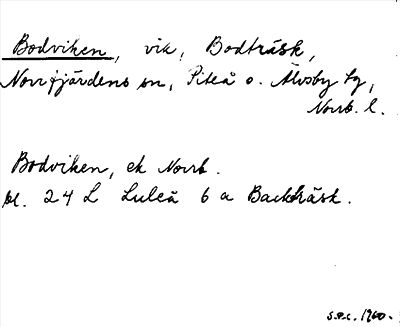 Bodviken, vik, Bodträsk,
Norrfjärdens sn, Piteå o. Älvsby tg,
Norrb. l.
Bodviken, ek Norrb.
bl. 24 L Luleå 6 a Backträsk.
S.P.C. 1960.